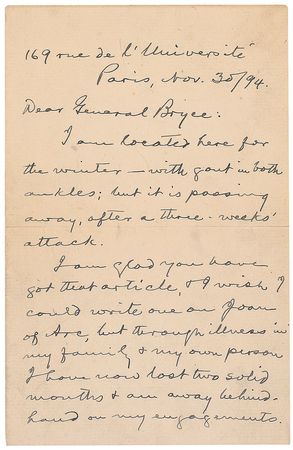 169 rue de l'Université
Paris, Nov. 30/94.
Dear General Bryce:
I am located here for
the winter — with gout in both
ankles; but it is passing
away, after a three-weeks'
attack.
I am glad you have
got that article, & I wish I
could write one on Joan
of Arc, but through illness in
my family & my own person
I have now lost two solid
months & am away behind-
hand on my engagements.